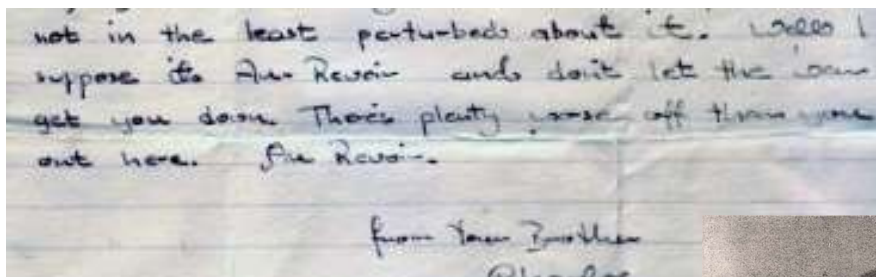 not in the least perturbed about it. Well I
suppose its Au Revoir and don't let the war
get you down. There's plenty worse off than you
out here. Au Revoir.
from Your Brother
Charles